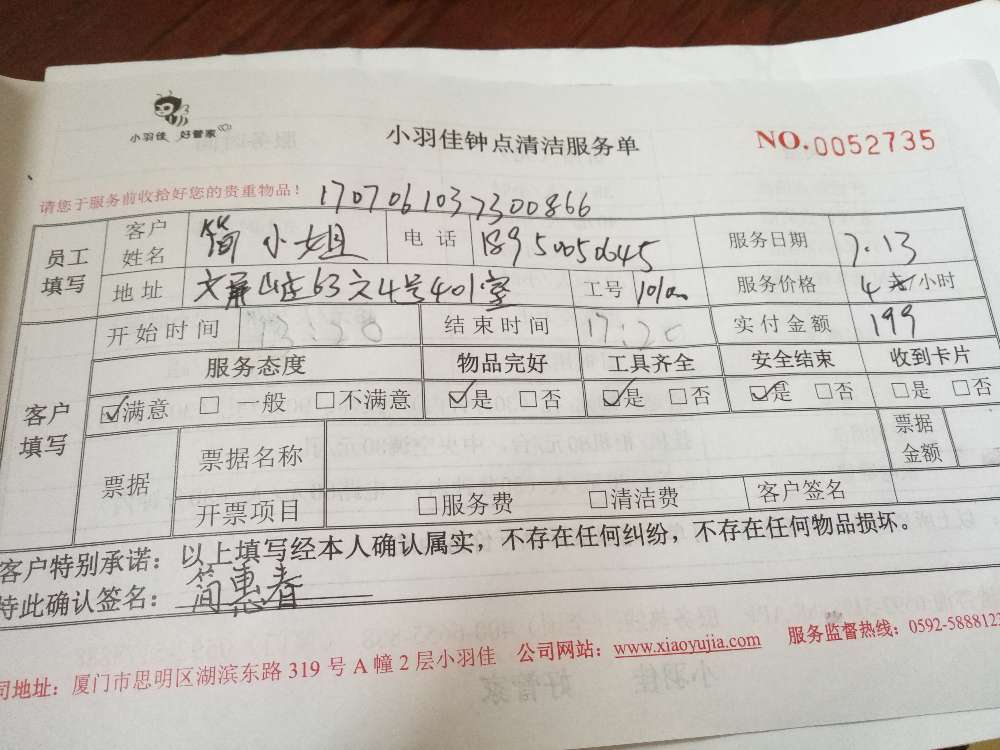 小羽佳 好管家
小羽佳钟点清洁服务单
NO.0052735
请您于服务前收拾好您的贵重物品！
1707061037300866
员工填写 客户姓名 简小姐 电话 18950050645 服务日期 7.13
地址 文屏山庄63之4号401室 工号 服务价格 4 /小时
客户填写 开始时间 13:20 结束时间 17:20 实付金额 199
服务态度 物品完好 工具齐全 安全结束 收到卡片
☑满意 □一般 □不满意 ☑是 □否 ☑是 □否 ☑是 □否 □是 □否
票据 票据名称 票据金额
开票项目 □服务费 □清洁费 客户签名
客户特别承诺：以上填写经本人确认属实，不存在任何纠纷，不存在任何物品损坏。
特此确认签名：简惠春
司地址：厦门市思明区湖滨东路319号A幢2层小羽佳 公司网站：www.xiaoyujia.com 服务监督热线：0592-5888123